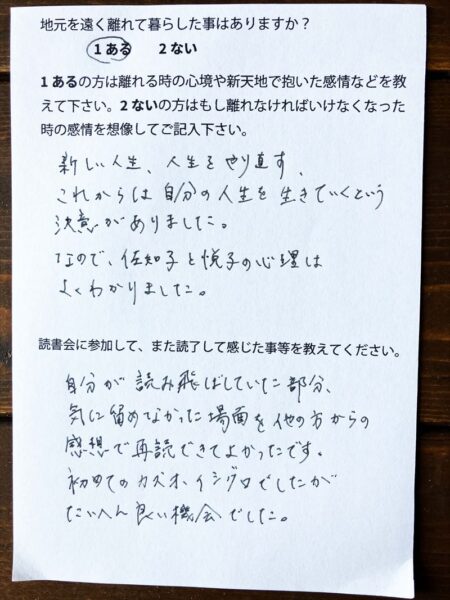 地元を遠く離れて暮らした事はありますか？
1 ある　2 ない
1 あるの方は離れる時の心境や新天地で抱いた感情などを教
えて下さい。2 ないの方はもし離れなければいけなくなった
時の感情を想像してご記入下さい。
新しい人生、人生をやり直す、
これからは自分の人生を生きていくという
決意がありました。
なので、佐知子と悦子の心理は
よくわかりました。
読書会に参加して、また読了して感じた事等を教えてください。
自分が読み飛ばしていた部分、
気に留めてなかった場面を他の方からの
感想で再読できてよかったです。
初めてのカズオ・イシグロでしたが
たいへん良い機会でした。